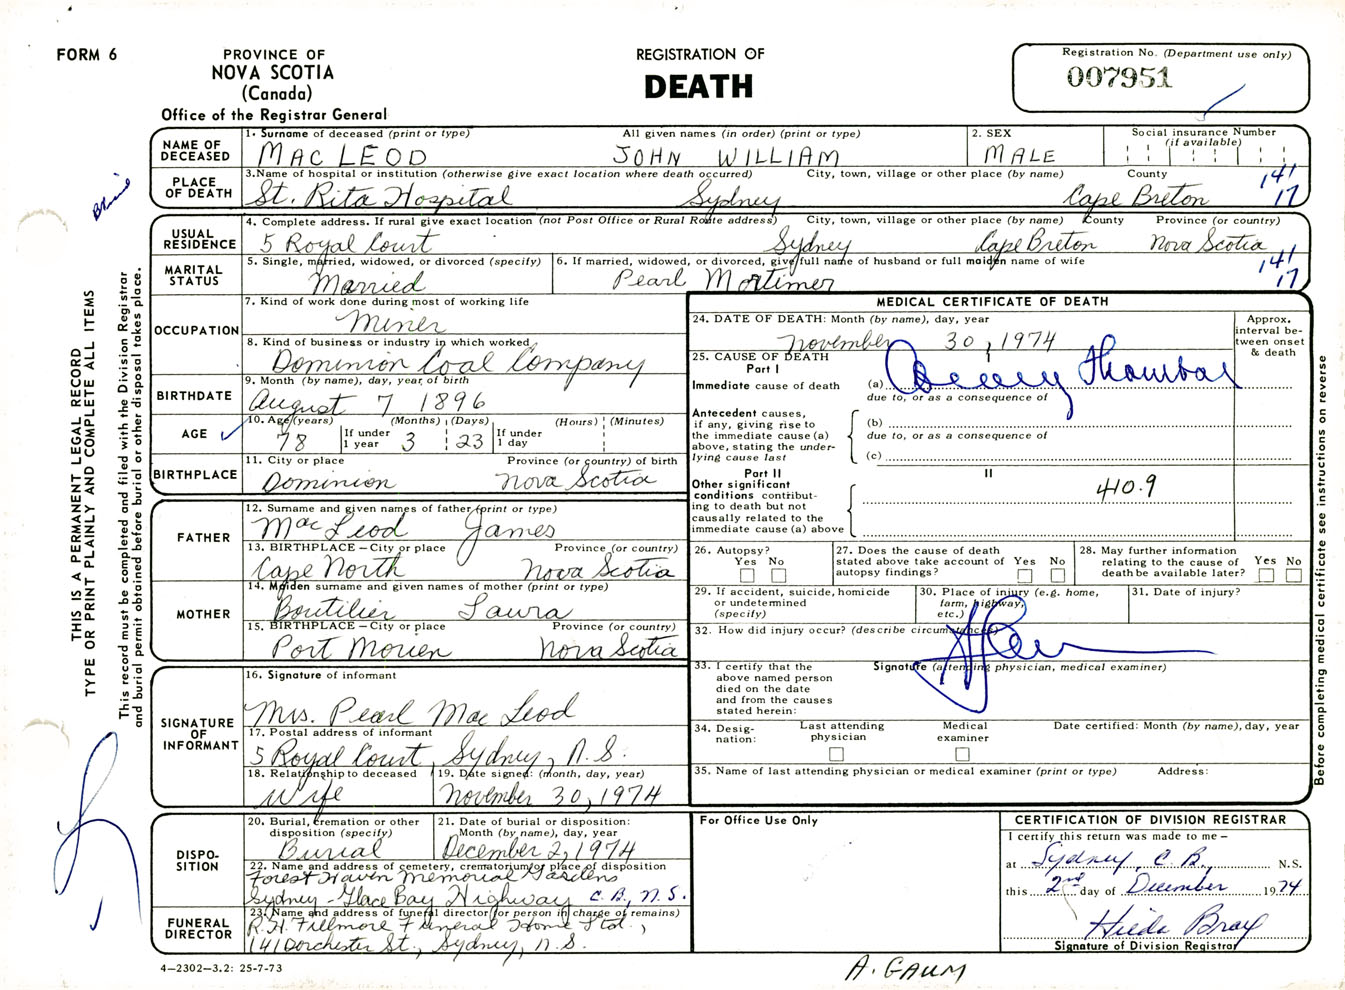 FORM 6
PROVINCE OF
NOVA SCOTIA
(Canada)
Office of the Registrar General
REGISTRATION OF
DEATH
Registration No. (Department use only)
007951
THIS IS A PERMANENT LEGAL RECORD
TYPE OR PRINT PLAINLY AND COMPLETE ALL ITEMS
This record must be completed and filed with the Division Registrar
and burial permit obtained before burial or other disposal takes place.
NAME OF DECEASED
1. Surname of deceased (print or type) All given names (in order) (print or type)
MAC LEOD JOHN WILLIAM
2. SEX
MALE
Social insurance Number
(if available)
PLACE OF DEATH
3. Name of hospital or institution (otherwise give exact location where death occurred) City, town, village or other place (by name) County
St. Rita Hospital Sydney Cape Breton
141
17
USUAL RESIDENCE
4. Complete address. If rural give exact location (not Post Office or Rural Route address) City, town, village or other place (by name) County Province (or country)
5 Royal Court Sydney Cape Breton Nova Scotia
141
17
MARITAL STATUS
5. Single, married, widowed, or divorced (specify)
Married
6. If married, widowed, or divorced, give full name of husband or full maiden name of wife
Pearl Mortimer
OCCUPATION
7. Kind of work done during most of working life
Miner
8. Kind of business or industry in which worked
Dominion Coal Company
BIRTHDATE
9. Month (by name), day, year, of birth
August 7 1896
AGE
10. Age (years) (Months) (Days) (Hours) (Minutes)
78 If under 1 year 3 23 If under 1 day
BIRTHPLACE
11. City or place Province (or country) of birth
Dominion Nova Scotia
FATHER
12. Surname and given names of father (print or type)
MacLeod James
13. BIRTHPLACE – City or place Province (or country)
Cape North Nova Scotia
MOTHER
14. Maiden surname and given names of mother (print or type)
Boutilier Laura
15. BIRTHPLACE – City or place Province (or country)
Port Morien Nova Scotia
SIGNATURE OF INFORMANT
16. Signature of informant
Mrs. Pearl Mac Leod
17. Postal address of informant
5 Royal Court, Sydney, N.S.
18. Relationship to deceased
Wife
19. Date signed: (month, day, year)
November 30, 1974
DISPOSITION
20. Burial, cremation or other
disposition (specify)
Burial
21. Date of burial or disposition:
Month (by name), day, year
December 2, 1974
22. Name and address of cemetery, crematorium or place of disposition
Forest Haven Memorial Gardens
Sydney - Glace Bay Highway C.B., N.S.
FUNERAL DIRECTOR
23. Name and address of funeral director (or person in charge of remains)
R.H. Fillmore Funeral Home Ltd.,
141 Dorchester St., Sydney, N.S.
4—2302—3.2: 25-7-73
MEDICAL CERTIFICATE OF DEATH
24. DATE OF DEATH: Month (by name), day, year
November 30, 1974
Approx. interval between onset & death
25. CAUSE OF DEATH
Part I
Immediate cause of death (a)
due to, or as a consequence of
Antecedent causes,
if any, giving rise to
the immediate cause (a)
above, stating the under-
lying cause last
(b)
due to, or as a consequence of
(c)
Part II
II
Other significant
conditions contribut-
ing to death but not
causally related to the
immediate cause (a) above
410.9
26. Autopsy?
Yes No
27. Does the cause of death
stated above take account of
autopsy findings?
Yes No
28. May further information
relating to the cause of
death be available later?
Yes No
29. If accident, suicide, homicide
or undetermined
(specify)
30. Place of injury (e.g. home,
farm, highway,
etc.)
31. Date of injury?
32. How did injury occur? (describe circumstances)
33. I certify that the
above named person
died on the date
and from the causes
stated herein:
Signature (attending physician, medical examiner)
34. Desig-
nation:
Last attending
physician
Medical
examiner
Date certified: Month (by name), day, year
35. Name of last attending physician or medical examiner (print or type) Address:
Before completing medical certificate see instructions on reverse
For Office Use Only
CERTIFICATION OF DIVISION REGISTRAR
I certify this return was made to me —
at Sydney, C.B., N.S.
this 2nd day of December 1974
Hilda Bray
Signature of Division Registrar
A. GAUM